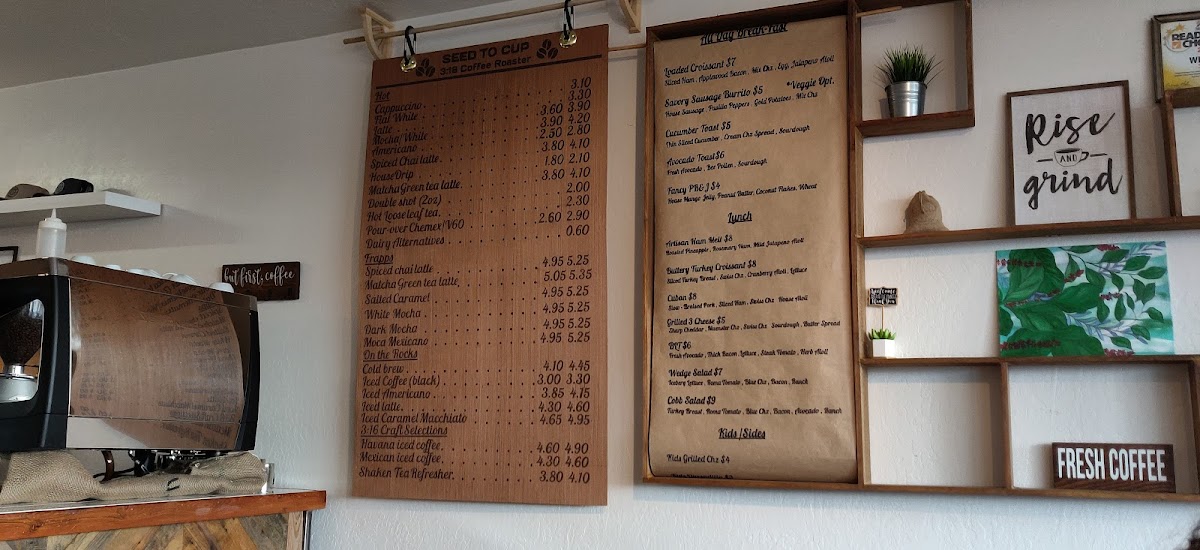 SEED TO CUP
3:16 Coffee Roaster
Hot
Cappuccino 3.10
Flat White 3.30
Latte 3.60 3.90
Mocha/White 3.90 4.20
Americano 2.50 2.80
Spiced Chai latte 3.80 4.10
HouseDrip 1.80 2.10
Matcha Green tea latte 3.80 4.10
Double shot (2oz) 2.00
Hot Loose leaf tea 2.30
Pour-over Chemex/V60 2.60 2.90
Dairy Alternatives 0.60
Frapps
Spiced chai latte 4.95 5.25
Matcha Green tea latte 5.05 5.35
Salted Caramel 4.95 5.25
White Mocha 4.95 5.25
Dark Mocha 4.95 5.25
Moca Mexicano 4.95 5.25
On the Rocks
Cold brew 4.10 4.45
Iced Coffee (black) 3.00 3.30
Iced Americano 3.85 4.15
Iced latte 4.30 4.60
Iced Caramel Macchiato 4.65 4.95
3:16 Craft Selections
Havana iced coffee 4.60 4.90
Mexican iced coffee 4.30 4.60
Shaken Tea Refresher 3.80 4.10
All Day Break-Fast
Loaded Croissant $7
Sliced Ham, Applewood Bacon, Mix Chz, Egg, Jalapeno Aioli
Savory Sausage Burrito $5 *Veggie Opt.
House Sausage, Pasilla Peppers, Gold Potatoes, Mix Chz
Cucumber Toast $5
Thin Sliced Cucumber, Cream Chz Spread, Sourdough
Avocado Toast $6
Fresh Avocado, Bee Pollen, Sourdough
Fancy PB&J $4
House Mango Jelly, Peanut Butter, Coconut Flakes, Wheat
Lunch
Artisan Ham Melt $8
Roasted Pineapple, Rosemary Ham, Mild Jalapeno Aioli
Buttery Turkey Croissant $8
Sliced Turkey Breast, Swiss Chz, Cranberry Aioli, Lettuce
Cuban $8
Slow-Braised Pork, Sliced Ham, Swiss Chz House Aioli
Grilled 3 Cheese $5
Sharp Cheddar, Muenster Chz, Swiss Chz Sourdough, Butter Spread
BLT $6
Fresh Avocado, Thick Bacon, Lettuce, Steak Tomato, Herb Aioli
Wedge Salad $7
Iceberg Lettuce, Roma Tomato, Blue Chz, Bacon, Ranch
Cobb Salad $9
Turkey Breast, Roma Tomato, Blue Chz, Bacon, Avocado, Ranch
Kids/Sides
Kids Grilled Chz $4
but first, coffee
Rise
AND
grind
FRESH COFFEE